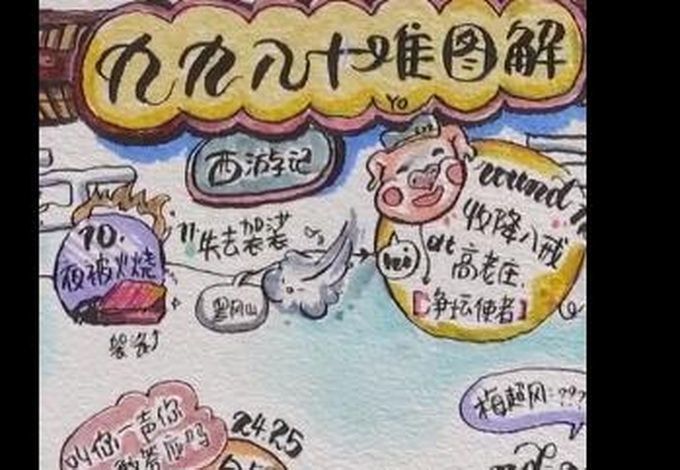 九九八十难图解
YO
西游记
10.
夜被火烧
袈裟
11
失去袈裟
黑风山
round
收降八戒
at
高老庄
【净坛使者】
叫你一声你
敢答应吗
24.25
梅超风:???